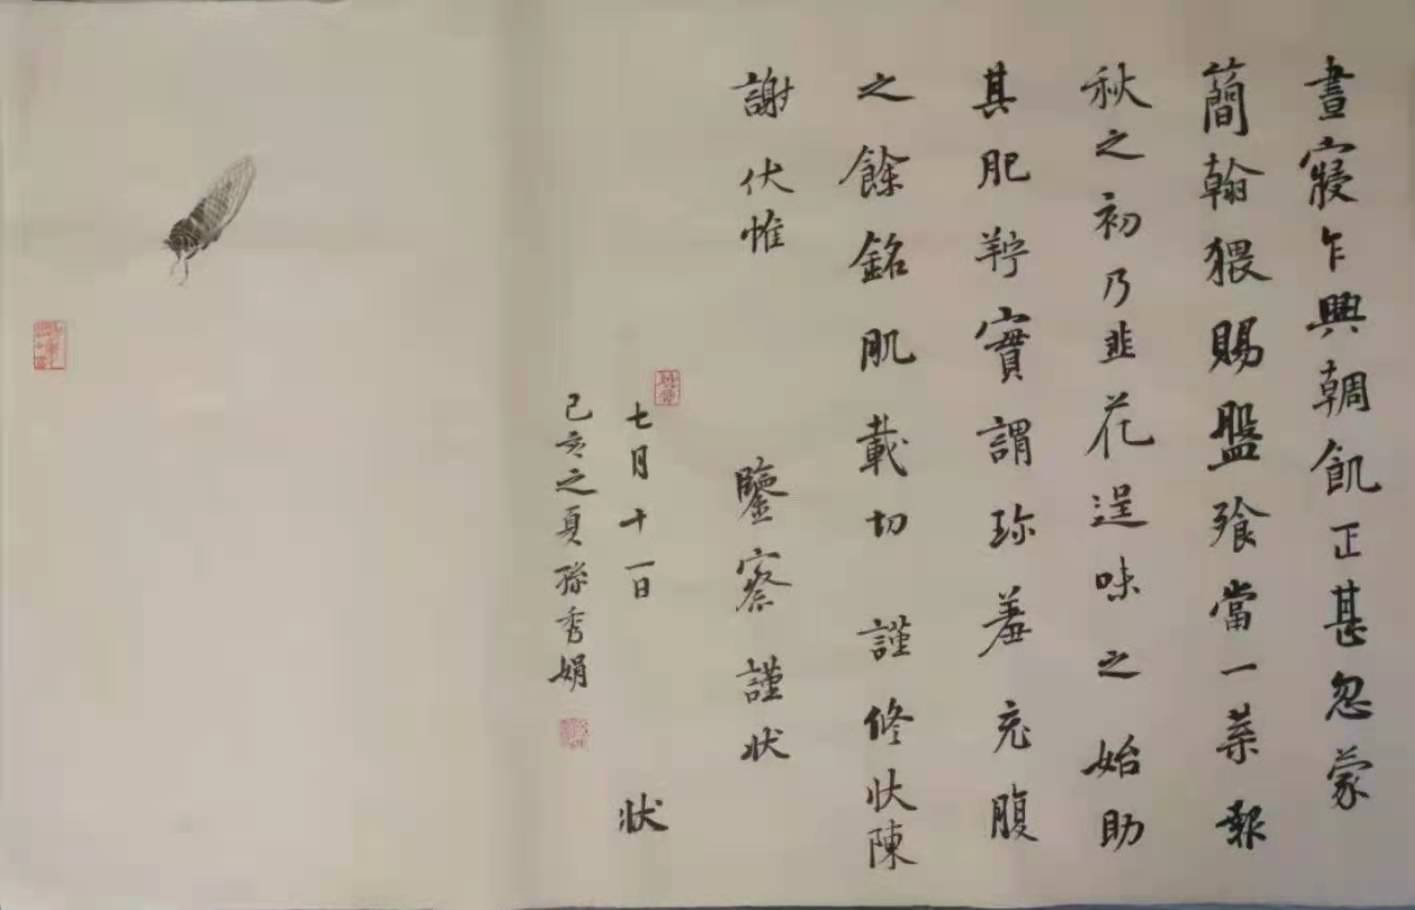 晝寢乍興輖飢正甚忽蒙
簡翰猥賜盤飧當一葉報
秋之初乃韭花逞味之始助
其肥羜實謂珍羞充腹
之餘銘肌載切謹修状陳
謝伏惟鑒察謹状
七月十一日状
己亥之夏孫秀娟